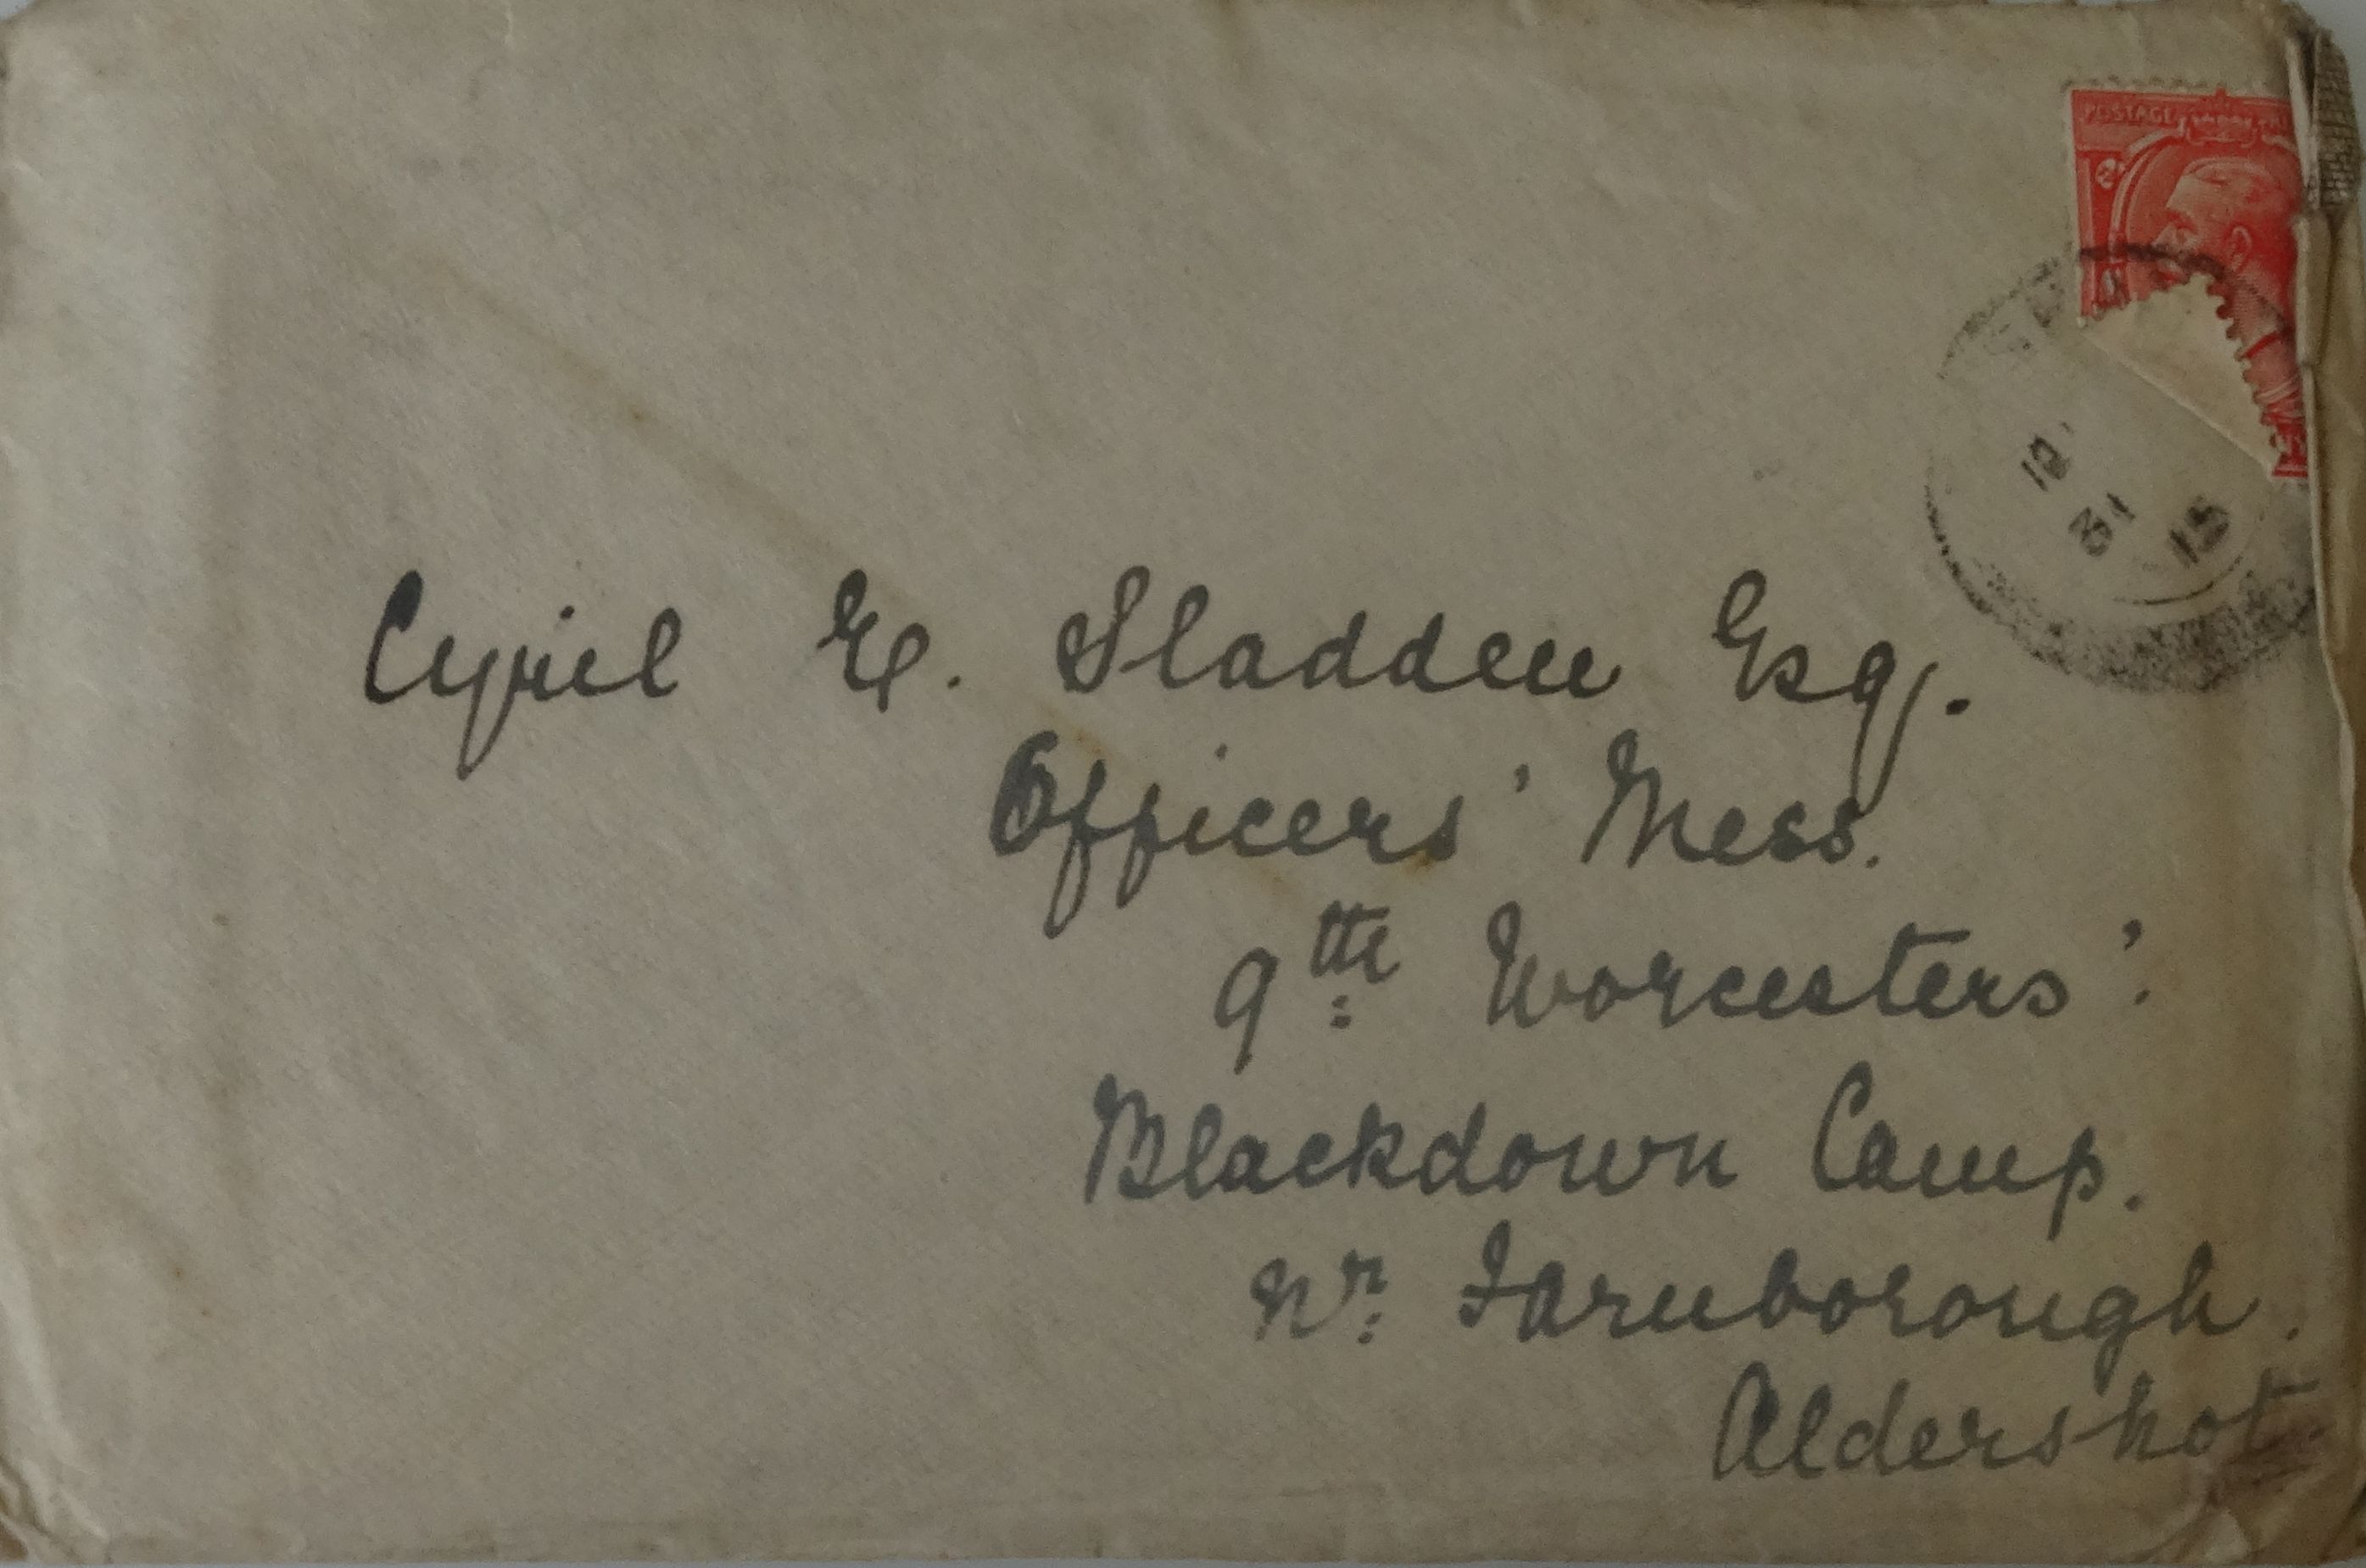 POSTAGE
12
31
15
Cyril E. Sladden Esq.
Officers' Mess.
9th Worcesters'.
Blackdown Camp.
Nr. Farnborough.
Aldershot.